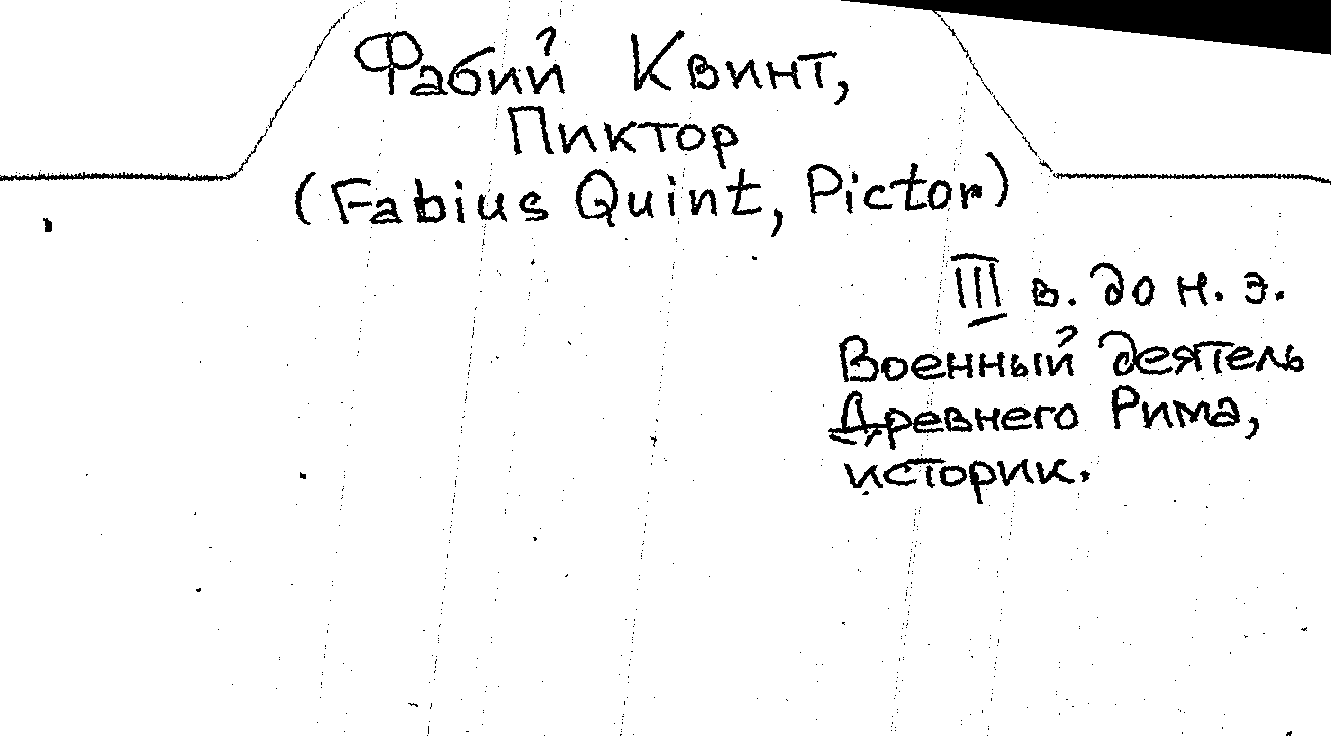 Фабий Квинт,
Пиктор
(Fabius Quint, Pictor)
III в. до н. э.
Военный деятель
Древнего Рима,
историк.